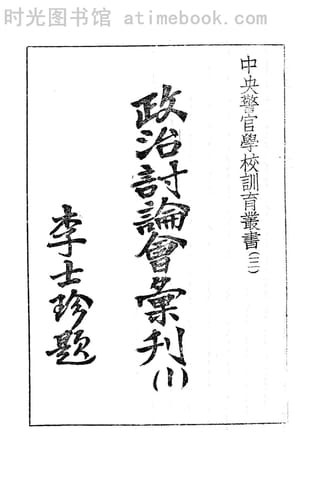 时光图书馆 atimebook.com
中央警官學校訓育叢書(三)
政治討論會彙刊(1)
李士珍題